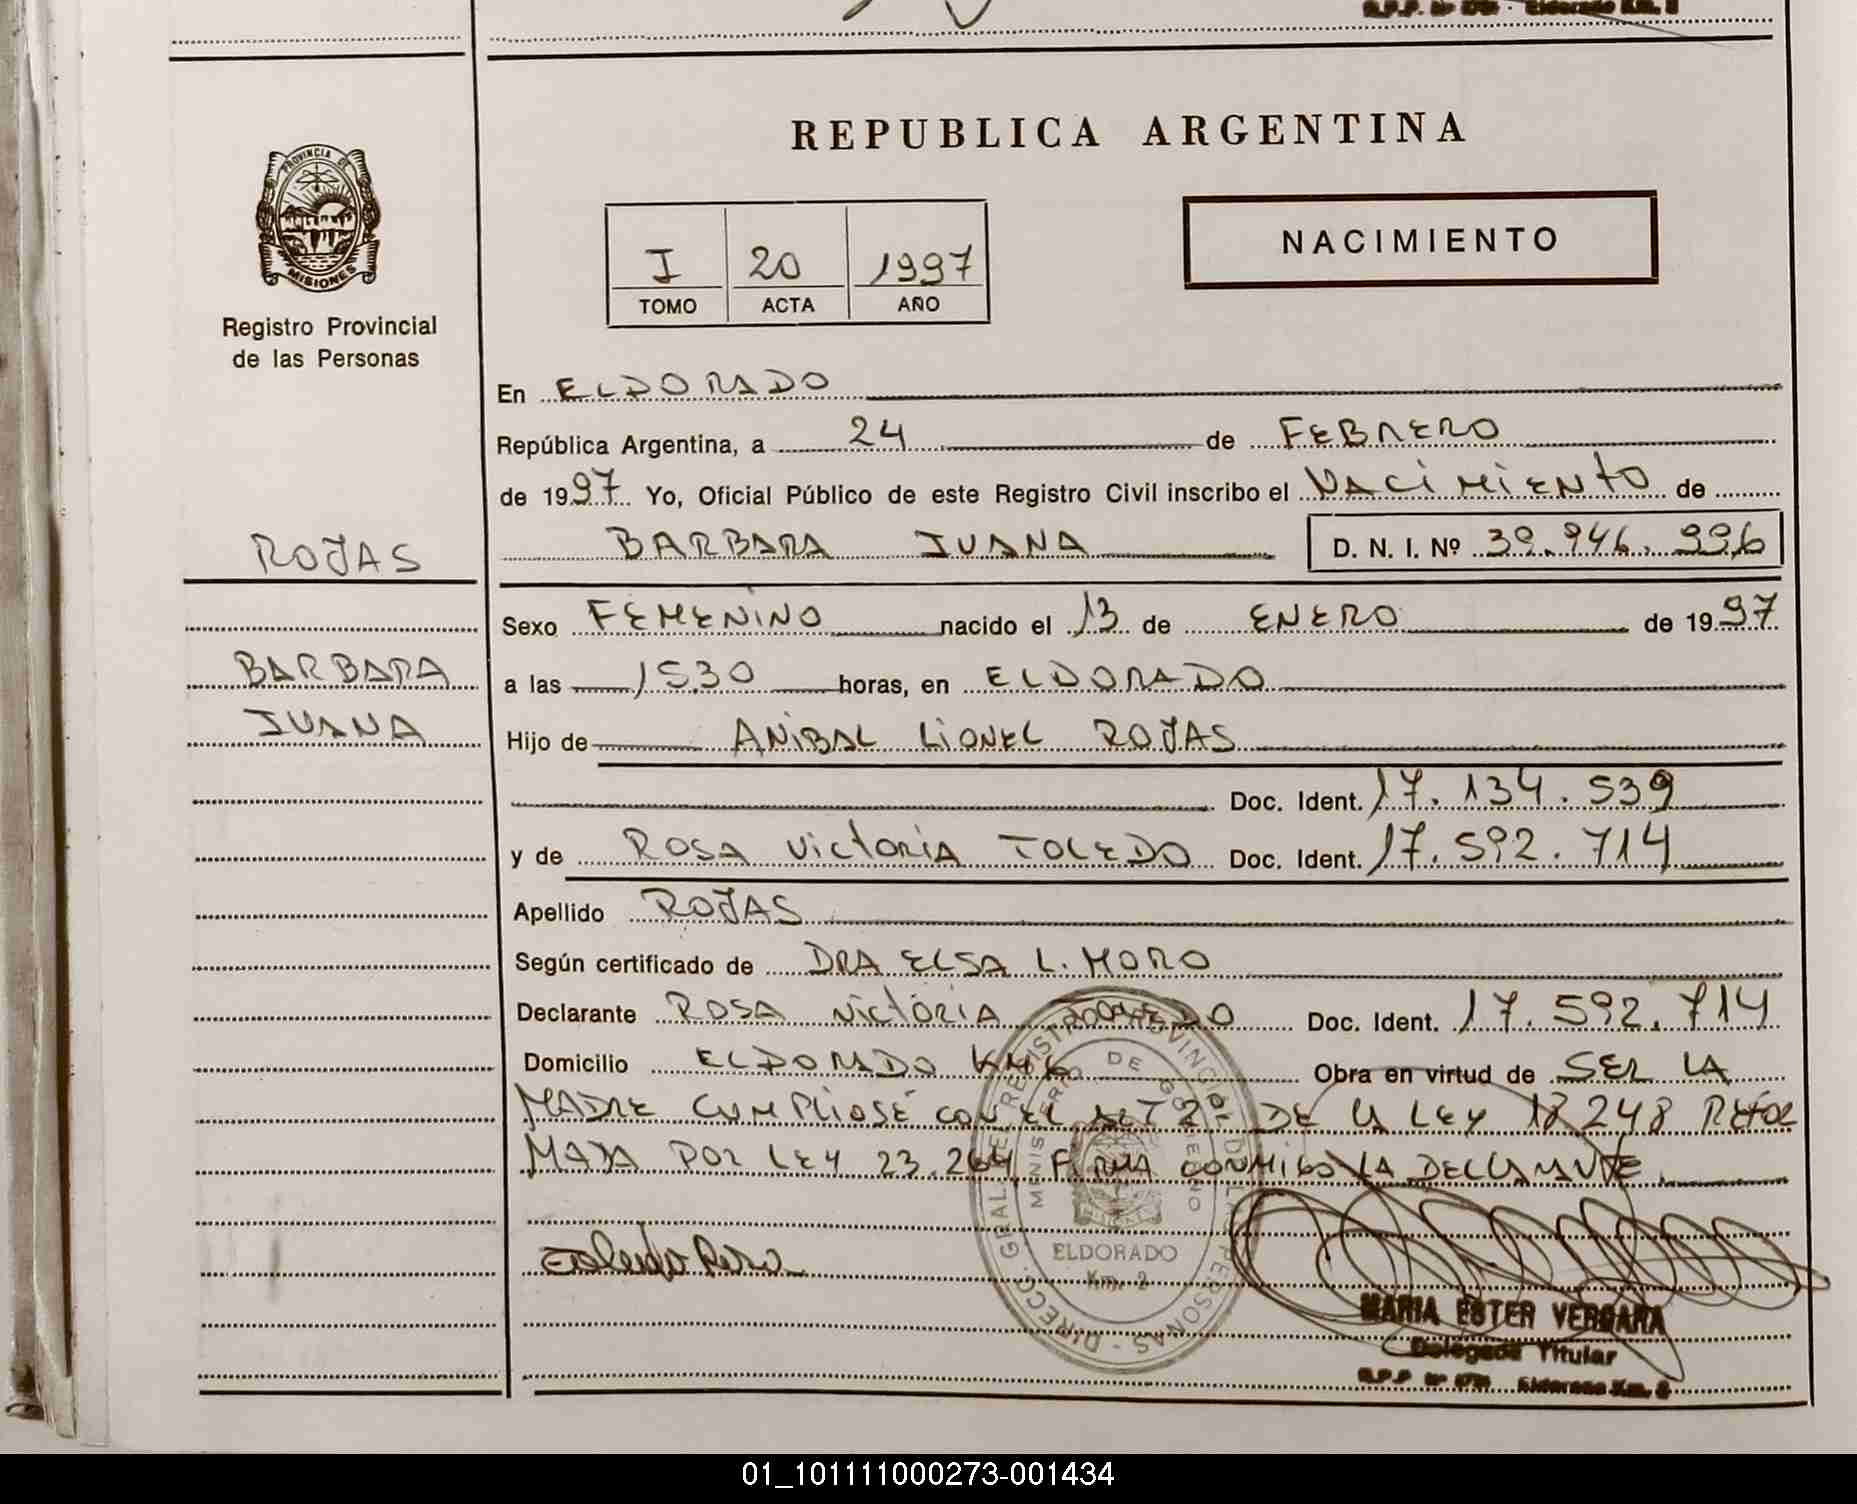 REPUBLICA ARGENTINA
PROVINCIA DE
MISIONES
Registro Provincial
de las Personas
I 20 1997
TOMO ACTA AÑO
NACIMIENTO
En ELDORADO
República Argentina, a 24 de FEBRERO
de 1997 Yo, Oficial Público de este Registro Civil inscribo el NACIMIENTO de
BARBARA JUANA D. N. I. Nº 39.946.996
ROJAS
BARBARA
JUANA
Sexo FEMENINO nacido el 13 de ENERO de 1997
a las 15.30 horas, en ELDORADO
Hijo de ANIBAL LIONEL ROJAS
Doc. Ident. 17.134.539
y de ROSA VICTORIA TOLEDO Doc. Ident. 17.592.714
Apellido ROJAS
Según certificado de DRA ELSA L. MORO
Declarante ROSA VICTORIA TOLEDO Doc. Ident. 17.592.714
Domicilio ELDORADO KM 6 Obra en virtud de SER LA
MADRE CUMPLIOSE CON EL ART 2º DE LA LEY 18.248 REFOR
MADA POR LEY 23.264 FIRMA CONMIGO LA DECLARANTE
Toledo Rosa
DIRECC. GRAL. DE REGISTRO PROVINCIAL DE LAS PERSONAS
MINISTERIO DE GOBIERNO
ELDORADO
Km. 2
MARIA ESTER VERGARA
Delegada Titular
Eldorado Km. 2
01_101111000273-001434